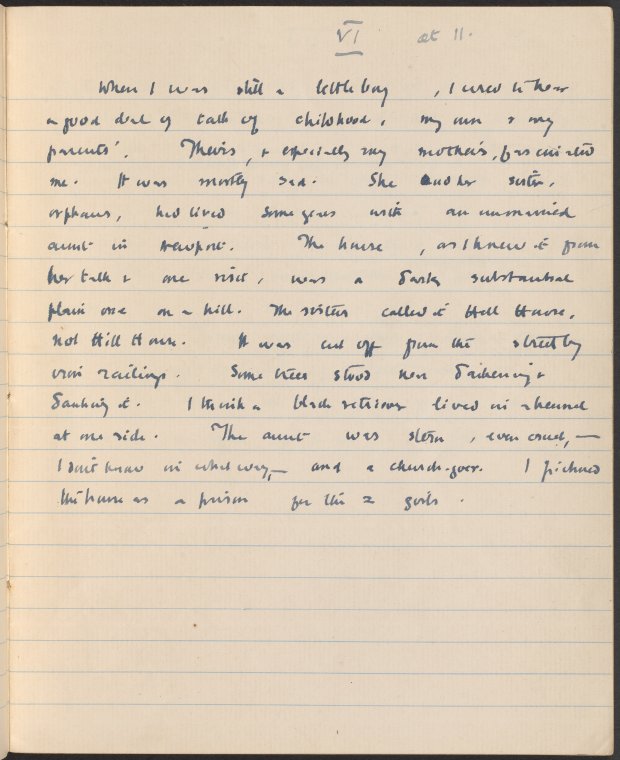 VI at 11.
When I was still a little boy, I used to hear
a good deal of talk of childhood, my own & my
parents'. Theirs, & especially my mother's, fascinated
me. It was mostly sad. She and her sister,
orphans, had lived some years with an unmarried
aunt in Newport. The house, as I knew it from
her talk & one visit, was a dark substantial
plain one on a hill. The sisters called it Hell House,
not Hill House. It was cut off from the street by
iron railings. Some trees stood near darkening &
danking it. I think a black retriever lived in a kennel
at one side. The aunt was stern, even cruel, —
I don't know in what way, — and a church-goer. I pictured
the house as a prison for the 2 girls.